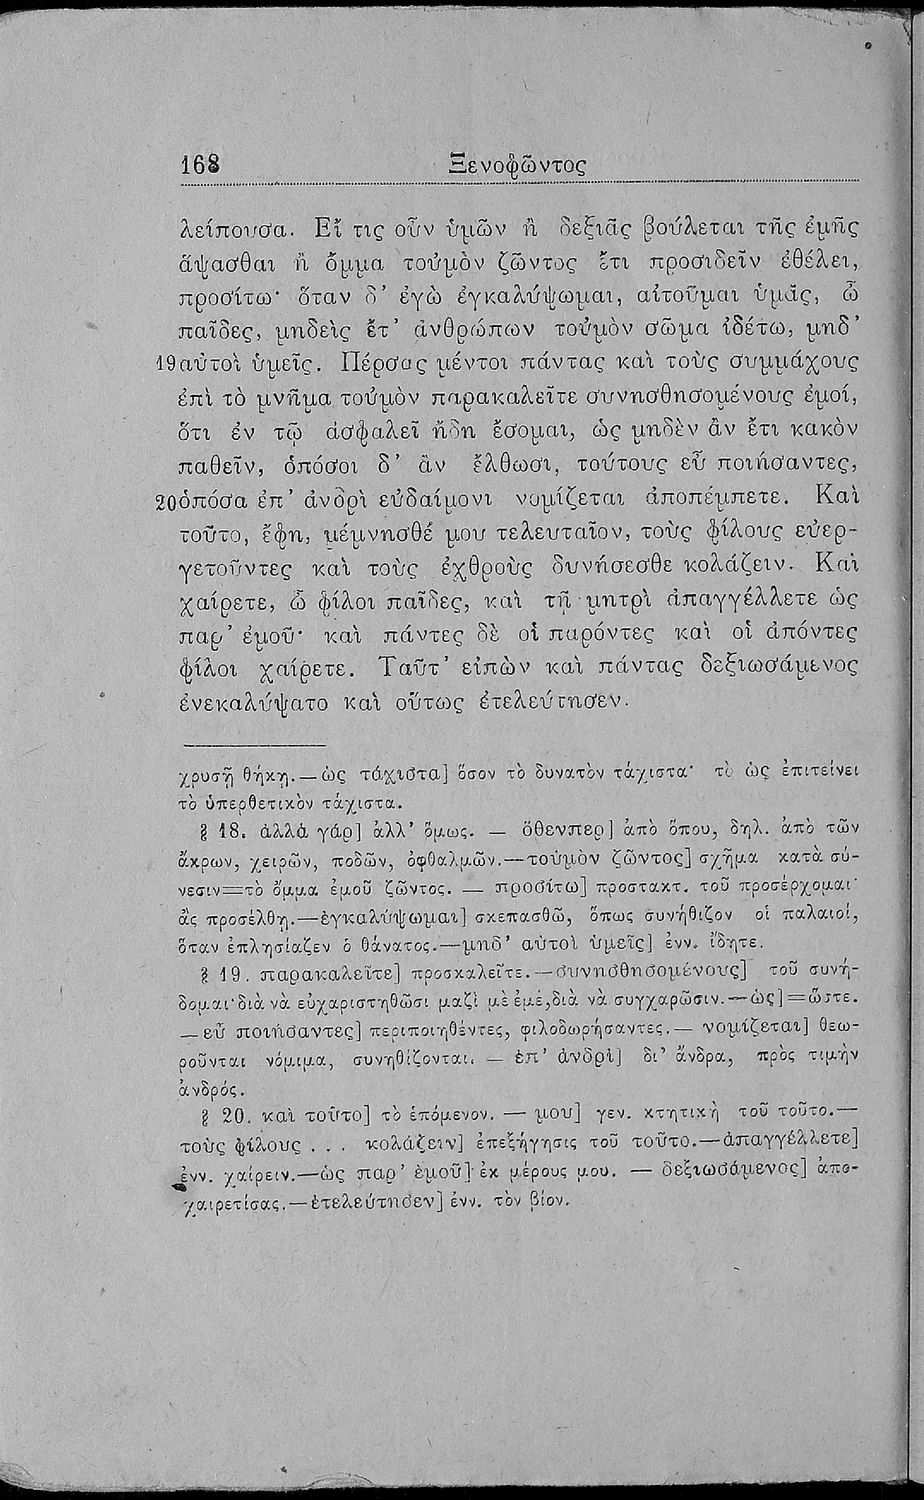 168 Ξενοφῶντος
λείπουσα. Εἴ τις οὖν ὑμῶν ἢ δεξιᾶς βούλεται τῆς ἐμῆς
ἅψασθαι ἢ ὄμμα τοὐμὸν ζῶντος ἔτι προσιδεῖν ἐθέλει,
προσίτω· ὅταν δ’ ἐγὼ ἐγκαλύψωμαι, αἰτοῦμαι ὑμᾶς, ὦ
παῖδες, μηδεὶς ἔτ’ ἀνθρώπων τοὐμὸν σῶμα ἰδέτω, μηδ’
19 αὐτοὶ ὑμεῖς. Πέρσας μέντοι πάντας καὶ τοὺς συμμάχους
ἐπὶ τὸ μνῆμα τοὐμὸν παρακαλεῖτε συνησθησομένους ἐμοί,
ὅτι ἐν τῷ ἀσφαλεῖ ἤδη ἔσομαι, ὡς μηδὲν ἂν ἔτι κακὸν
παθεῖν, ὁπόσοι δ’ ἂν ἔλθωσι, τούτους εὖ ποιήσαντες,
20 ὁπόσα ἐπ’ ἀνδρὶ εὐδαίμονι νομίζεται ἀποπέμπετε. Καὶ
τοῦτο, ἔφη, μέμνησθέ μου τελευταῖον, τοὺς φίλους εὐερ-
γετοῦντες καὶ τοὺς ἐχθροὺς δυνήσεσθε κολάζειν. Καὶ
χαίρετε, ὦ φίλοι παῖδες, καὶ τῇ μητρὶ ἀπαγγέλλετε ὡς
παρ’ ἐμοῦ· καὶ πάντες δὲ οἱ παρόντες καὶ οἱ ἀπόντες
φίλοι χαίρετε. Ταῦτ’ εἰπὼν καὶ πάντας δεξιωσάμενος
ἐνεκαλύψατο καὶ οὕτως ἐτελεύτησεν.
χρυσῇ θήκῃ.—ὡς τάχιστα] ὅσον τὸ δυνατὸν τάχιστα· τὸ ὡς ἐπιτείνει
τὸ ὑπερθετικὸν τάχιστα.
§ 18. ἀλλὰ γάρ] ἀλλ’ ὅμως. — ὅθενπερ] ἀπὸ ὅπου, δηλ. ἀπὸ τῶν
ἄκρων, χειρῶν, ποδῶν, ὀφθαλμῶν.—τοὐμὸν ζῶντος] σχῆμα κατὰ σύ-
νεσιν=τὸ ὄμμα ἐμοῦ ζῶντος. — προσίτω] προστακτ. τοῦ προσέρχομαι·
ἂς προσέλθῃ.—ἐγκαλύψωμαι] σκεπασθῶ, ὅπως συνήθιζον οἱ παλαιοί,
ὅταν ἐπλησίαζεν ὁ θάνατος.—μηδ’ αὐτοὶ ὑμεῖς] ἐνν. ἴδητε.
§ 19. παρακαλεῖτε] προσκαλεῖτε.—συνησθησομένους] τοῦ συνή-
δομαι· διὰ νὰ εὐχαριστηθῶσι μαζὶ μὲ ἐμέ, διὰ νὰ συγχαρῶσιν.—ὡς]=ὥστε.
—εὖ ποιήσαντες] περιποιηθέντες, φιλοδωρήσαντες.— νομίζεται] θεω-
ροῦνται νόμιμα, συνηθίζονται. — ἐπ’ ἀνδρὶ] δι’ ἄνδρα, πρὸς τιμὴν
ἀνδρός.
§ 20. καὶ τοῦτο] τὸ ἑπόμενον. — μου] γεν. κτητικὴ τοῦ τοῦτο.—
τοὺς φίλους . . . κολάζειν] ἐπεξήγησις τοῦ τοῦτο.—ἀπαγγέλλετε]
ἐνν. χαίρειν.—ὡς παρ’ ἐμοῦ] ἐκ μέρους μου. — δεξιωσάμενος] ἀπο-
χαιρετίσας.—ἐτελεύτησεν] ἐνν. τὸν βίον.